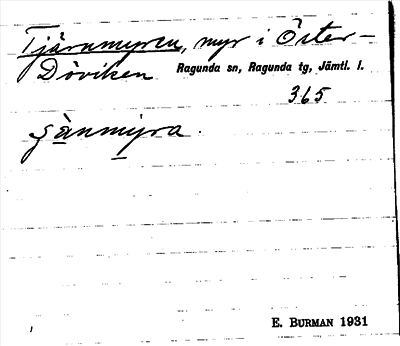 Tjärnmyren, myr i Öster-
Döviken Ragunda sn, Ragunda tg, Jämtl. l.
365
E. BURMAN 1931